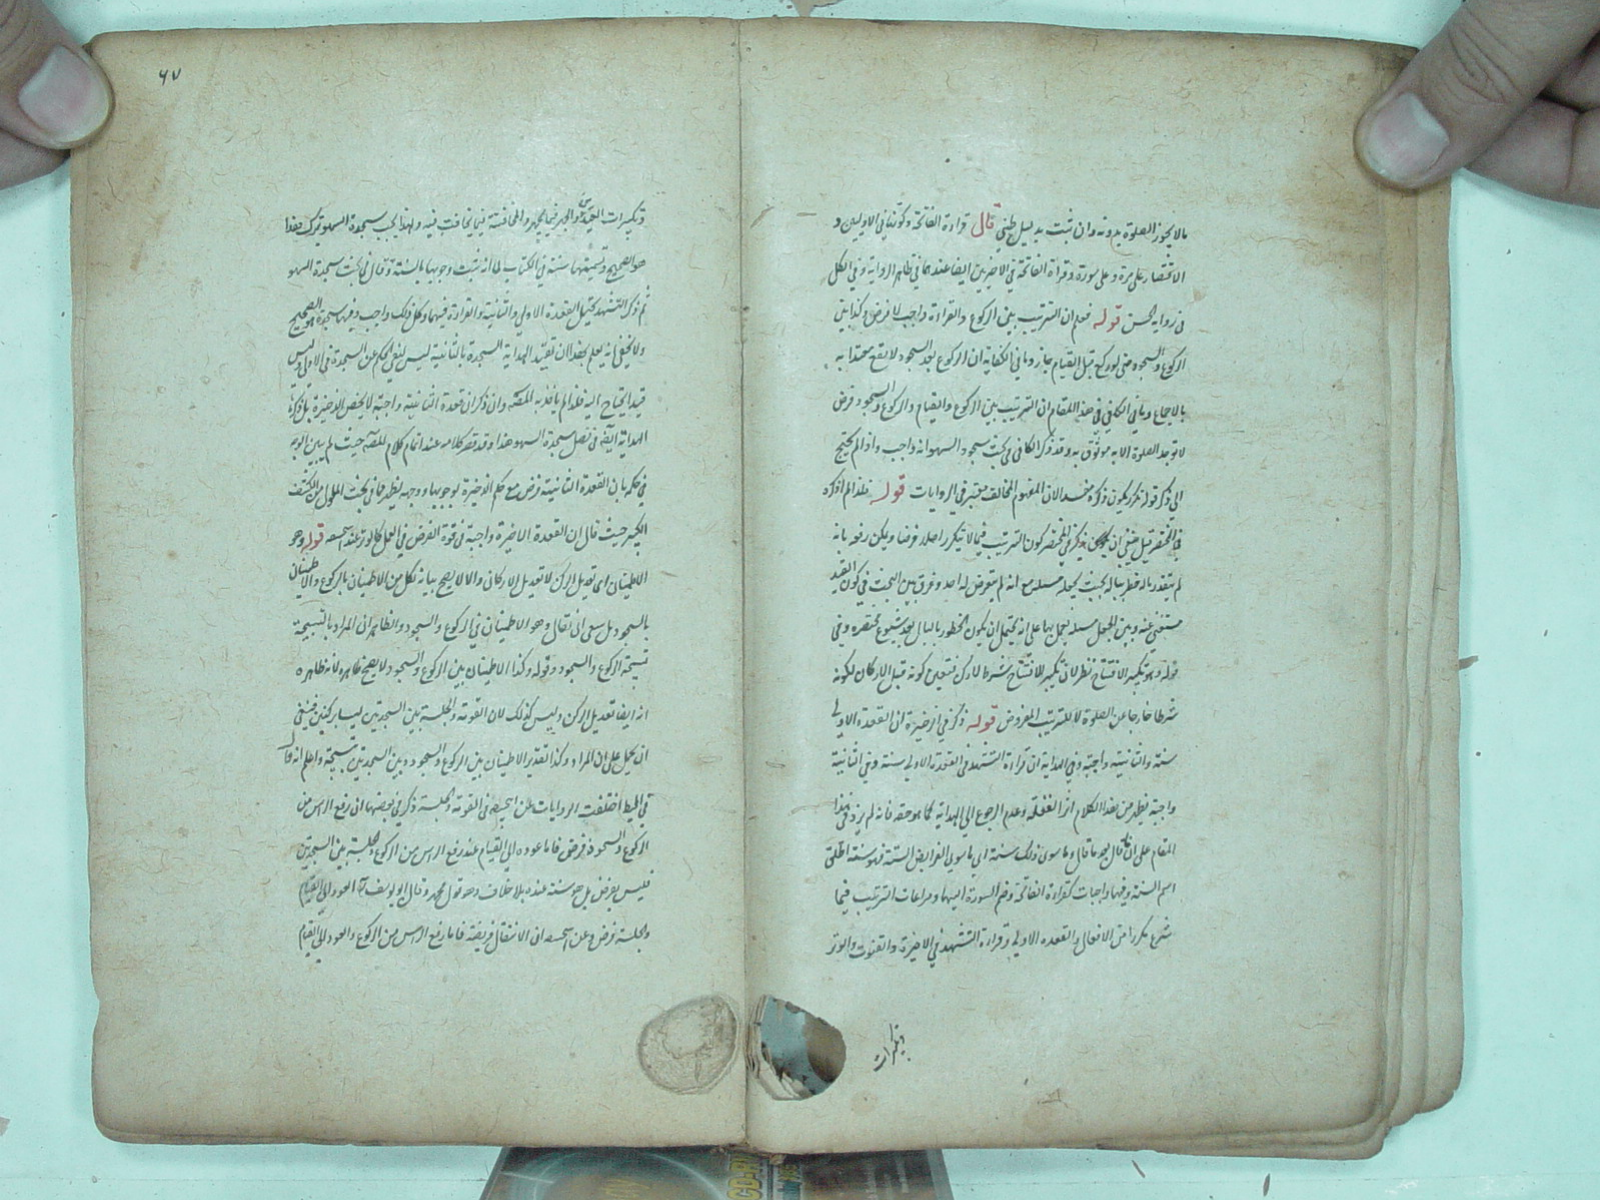 ما لا يجوز الصلوة بدونه وان ثبت بدليل ظني قال قراءة الفاتحة وكونها في الاوليين و
الاقتصار على مرة وعلى سورة وقراءة الفاتحة في الاخريين ايضا عندهما في ظاهر الرواية وفي الكل
في رواية الحسن قوله فعلم ان الترتيب بين الركوع والقراءة واجب لا فرض وكذا بين
الركوع والسجود حتى لو ركع قبل القيام جاز وما في الكفاية ان الركوع بعد السجود لا يقع معتدا به
بالاجماع وما في الكافي في هذا المقام ان الترتيب بين الركوع والقيام والركوع والسجود فرض
لا توجد الصلوة الا به موثوق به وقد ذكر الكافي في بحث سجود السهو انه واجب واذا لم يحتج
الى ذكر قوله تكرر يكون ذكره مفسدا لان المفهوم المخالف معتبر في الروايات قوله فلهذا لم اذكره
في المختصر قيل ينبغي ان يذكر في المختصر كون الترتيب فيما لا يتكرر اصلا فرضا ويمكن دفعه بانه
لم يتقدر بالخطر بباله بحيث يجعله مسئلة مع انه لم يتعرض له احد وفرق بين البحث في كون القيد
مستغنى عنه وبين الجعل مسئلة يعمل بها على انه يحتمل ان يكون الخطور بالبال بعد شيوع مختصره وفي
قوله وهو تكبيرة الافتتاح نظر لان تكبير الافتتاح شرط لا ركن فتعين كونه قبل الاركان لكونه
شرطا خارجا عن الصلوة لا للترتيب المفروض قوله ذكر في الذخيرة ان القعدة الاولى
سنة والثانية واجبة وفي الهداية ان قراءة التشهد في القعدة الاولى سنة وفي الثانية
واجبة يظهر من هذا الكلام اثر الغفلة وعدم الرجوع الى الهداية كما هو حقه فانه لم يزد في هذا
المقام على ان قال بعد ما قال وما سوى ذلك سنة اي ما سوى الفرائض الستة فهو سنة اطلق
اسم السنة وفيها واجبات كقراءة الفاتحة وضم السورة اليها ومراعات الترتيب فيما
شرع مكررا من الافعال والقعدة الاولى وقراءة التشهد في الاخيرة والقنوت والوتر
وتكبيرات
٦٧
وتكبيرات العيدين والجهر فيما يجهر والمخافتة فيما يخافت فيه ولهذا يجب سجدة السهو بترك هذا
هو الصحيح وتسميتها سنة في الكتاب لما انه ثبت وجوبها بالسنة وقال في بحث سجدة السهو
ثم ذكر التشهد يحتمل القعدة الاولى والثانية والقراءة فيهما وكل ذلك واجب وفيها سجدة هو الصحيح
ولا يخفى انه يعلم بهذا ان تقييد الهداية السجدة بالثانية ليس لنفي الحكم عن السجدة في الاولى وليس
قيد الاحتياج اليه فلهذا لم يأخذ به المصنف وان ذكر ان قعدة الثانية واجبة لا يخص الذخيرة بل ذكرها
الهداية ايضا في فصل سجدة السهو هذا وقد قصر كلامه عند اتمام كلام المصنف حيث لم يبين الوجه
في حكمه بان القعدة الثانية فرض مع حكم الذخيرة بوجوبها ووجهه يظهر مما في بحث المأول من الكشف
الكبير حيث قال ان القعدة الاخيرة واجبة في قوة الفرض في العمل كالوتر عند ابي حنيفة قوله وهو
الاطمينان اي تعديل الركن لا تعديل الاركان والا لا يصح بيانه لكل من الاطمينان بالركوع والاطمينان
بالسجود بل ينبغي ان يقال وهو الاطمينان في الركوع والسجود والظاهر ان المراد بالتسبيحة
تسبيحة الركوع والسجود وقوله وكذا الاطمينان بين الركوع والسجود لا يصح ظاهره لان ظاهره
انه ايضا تعديل الركن وليس كذلك لان القومة والجلسة بين السجدتين ليسا بركنين فينبغي
ان يحمل على ان المراد وكذا تقدير الاطمينان بين الركوع والسجود وبين السجدتين تسبيحة واعلم انه قال
في المحيط اختلفت الروايات عن ابي حنيفة في القومة والجلسة ذكر في بعضها ان رفع الرأس من
الركوع والسجود فرض فاما عوده الى القيام عند رفع الرأس من الركوع والجلسة بين السجدتين
فليس بفرض بل هو سنة عنده بلا خلاف وهو قول محمد وقال ابو يوسف العود الى القيام
والجلسة فرض وعن ابي حنيفة ان الانتقال فريضة فاما رفع الرأس من الركوع والعود الى القيام